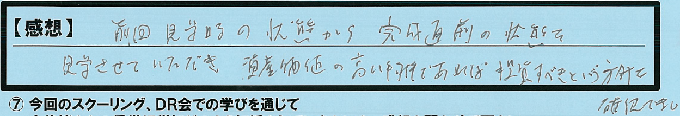 【感想】 前回見学時の状態から完成直前の状態を
見学させていただき 資産価値の高い物件であれば投資すべきという方針を
確認でき
⑦ 今回のスクーリング、DR会での学びを通じて